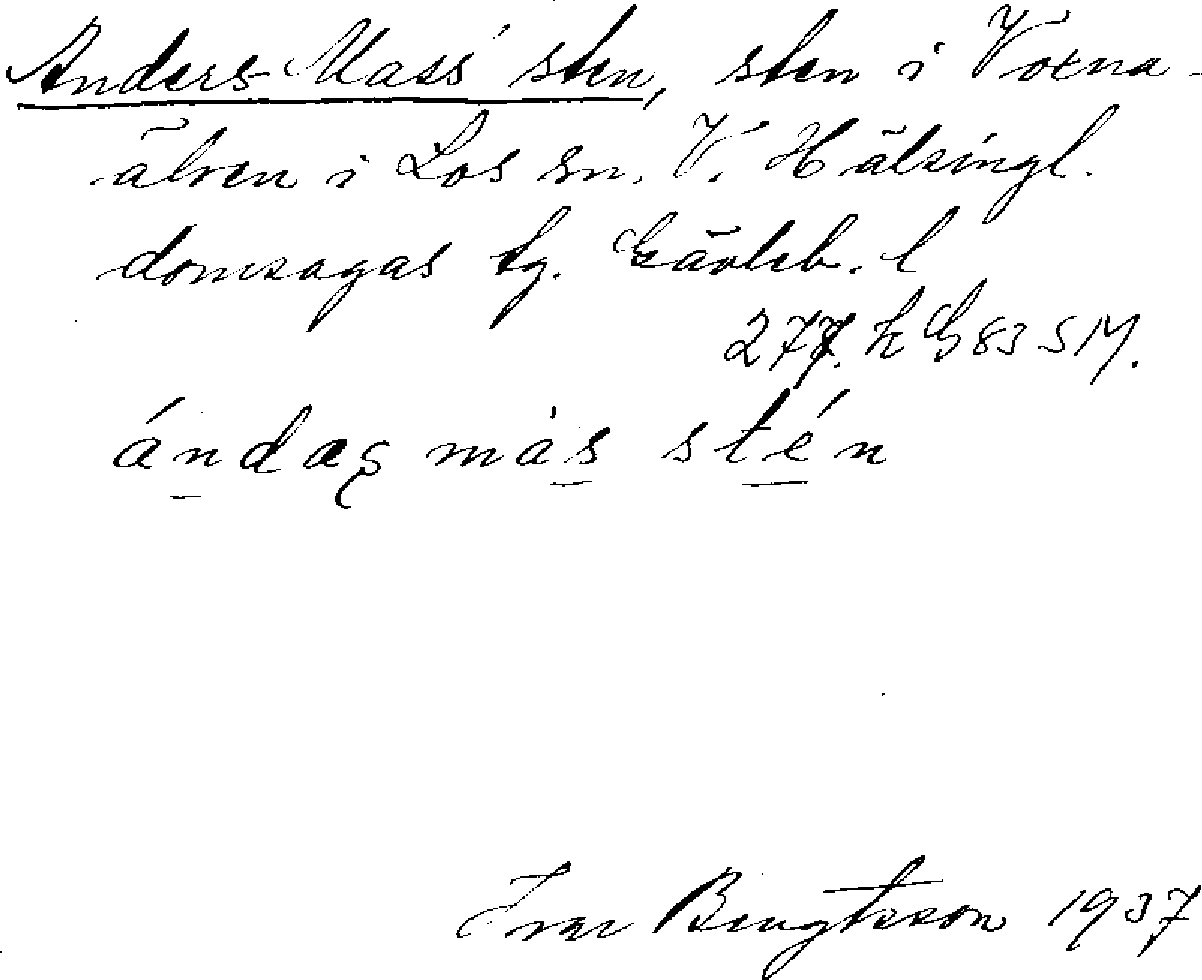 Anders-Mass' sten, sten i Voxna-
älven i Los sn. V. Hälsingl.
domsagas tg. Gävleb. l
277. k G 83 SM.
ándaş más stén
Ivar Bengtsson 1937